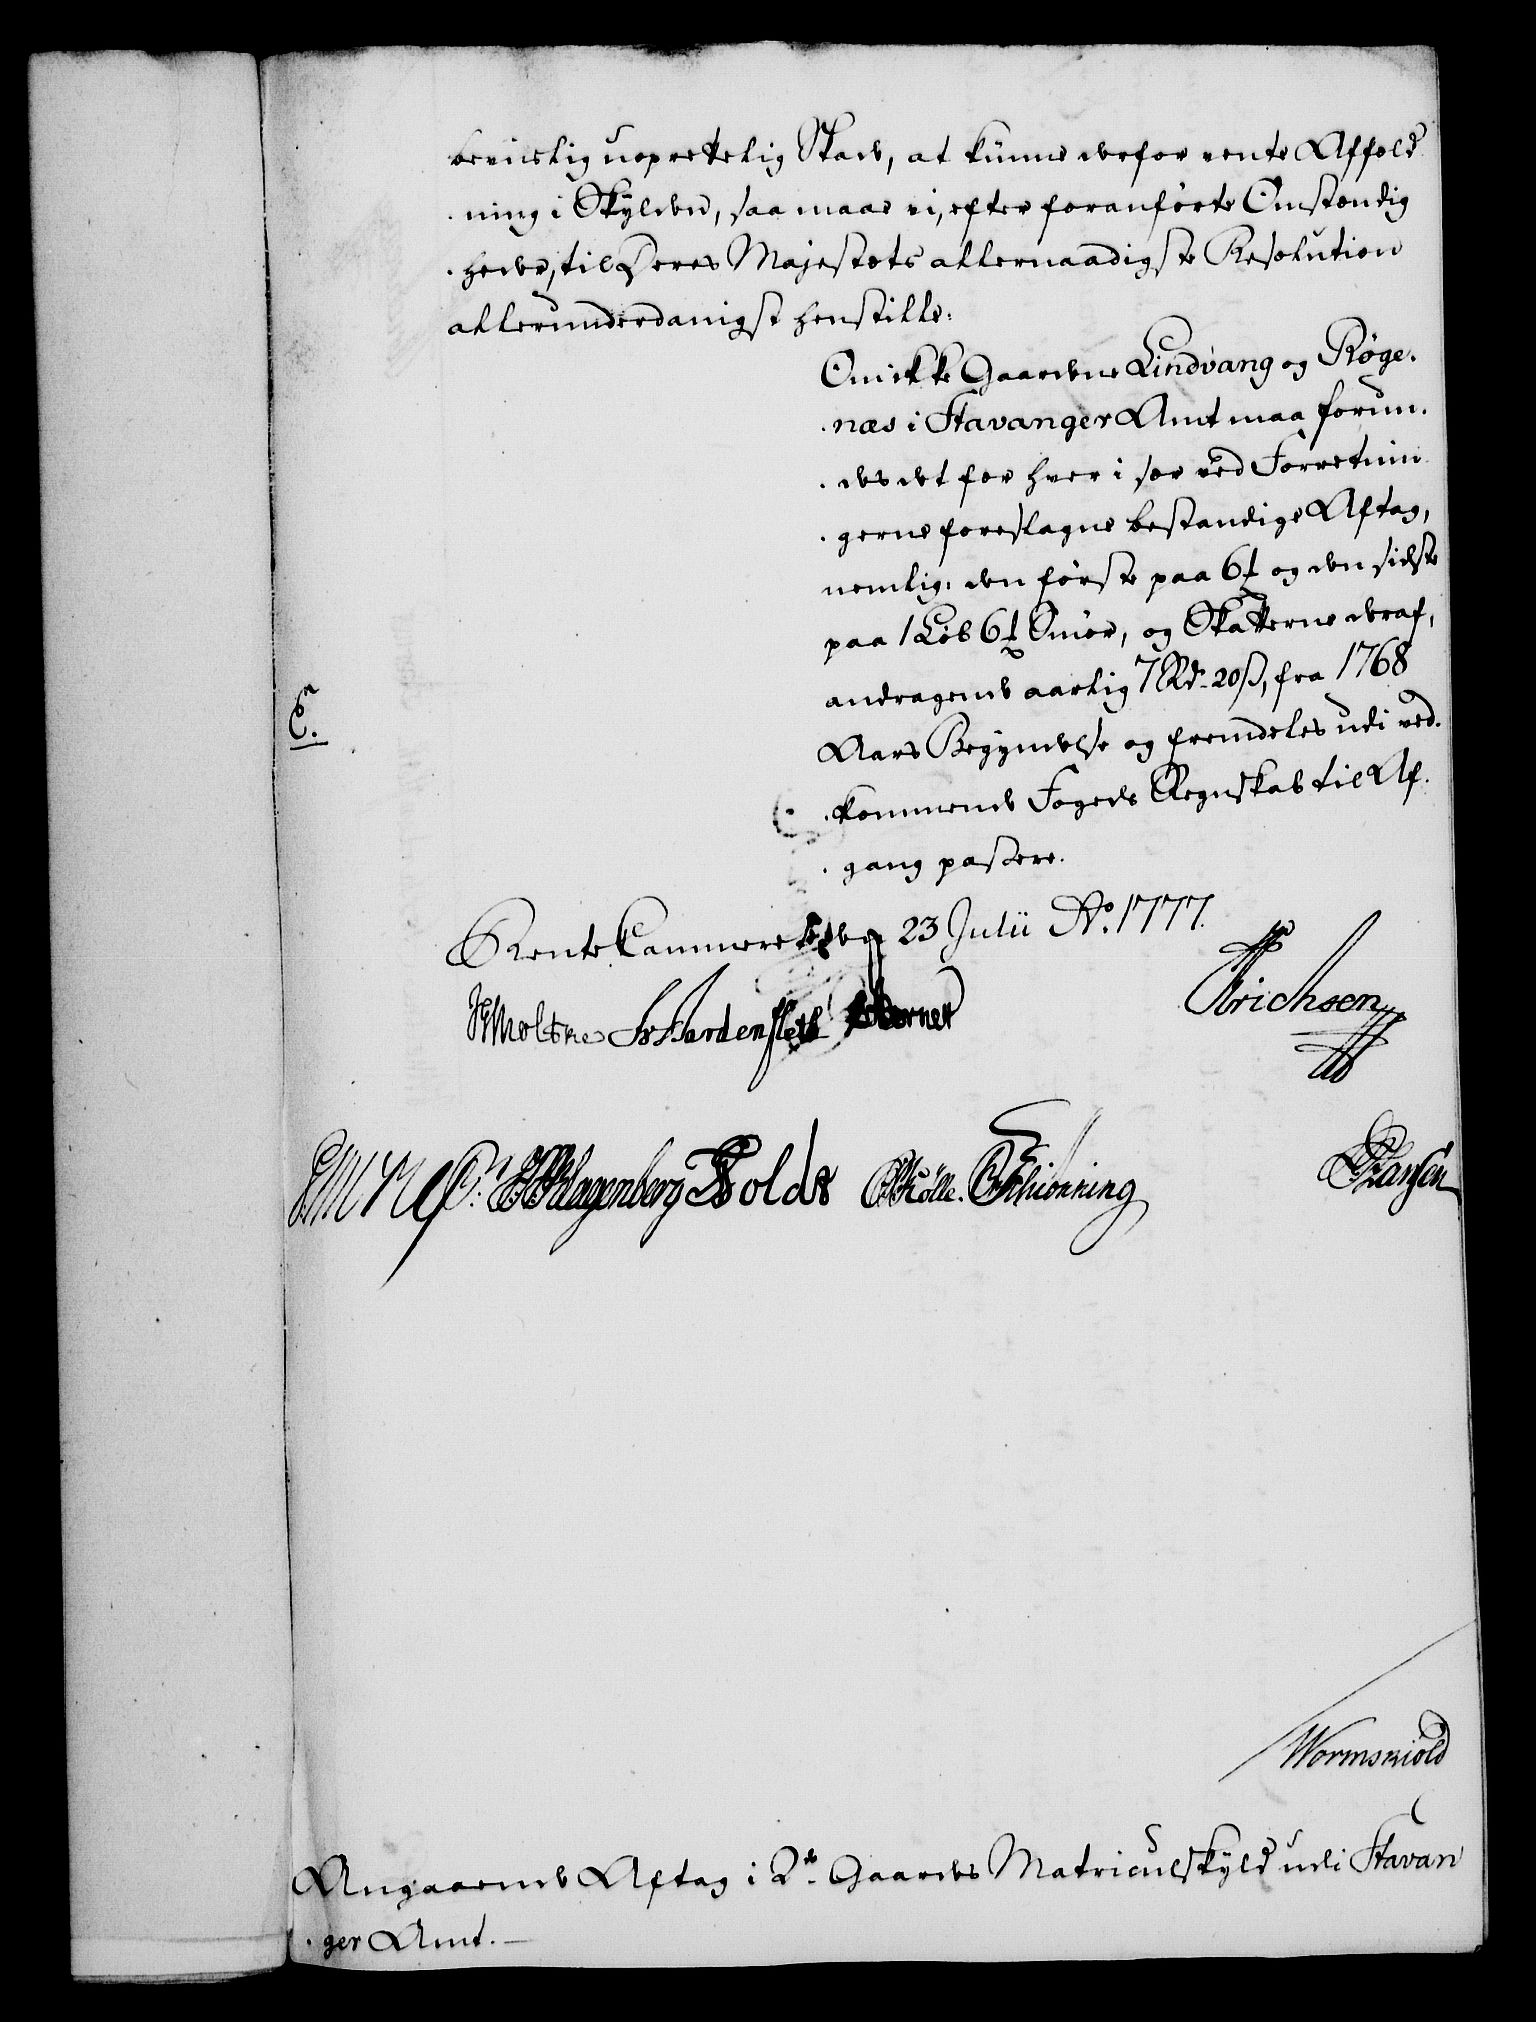 bevislig uoprettelig Skade, at kunne derfor vente Affæld
ning i Skylden, saa maae vi, efter foranførte Omstændig
heder, til Deres Majestæts allernaadigste Resolution
allerunderdanigst henstille:
Om ikke Gaardene Lindvang og Røge.
næs i Stavanger Amt maa forun.
des det for hver i sær ved Forretnin
gerne foreslagne bestandige Aftag,
nemlig: den første paa 6 ℔ og den sidste
paa 1 Løb 6 ℔ Smør, og Skatterne deraf,
andragende aarlig 7 Rd. 20 ß, fra 1768
Aars Begyndelse og fremdeles udi ved.
kommende Fogeds Regnskab til Af.
gang passere.
E.
Rente Cammeret den 23 Julii Ao. 1777.
Moltke Hardenfleth Erichsen
Klagenberg Holds Mølle. Schiønning Hansen
Wormskiold
Angaaende Aftag i 2de Gaardes Matriculskyld udi Stavan
ger Amt.